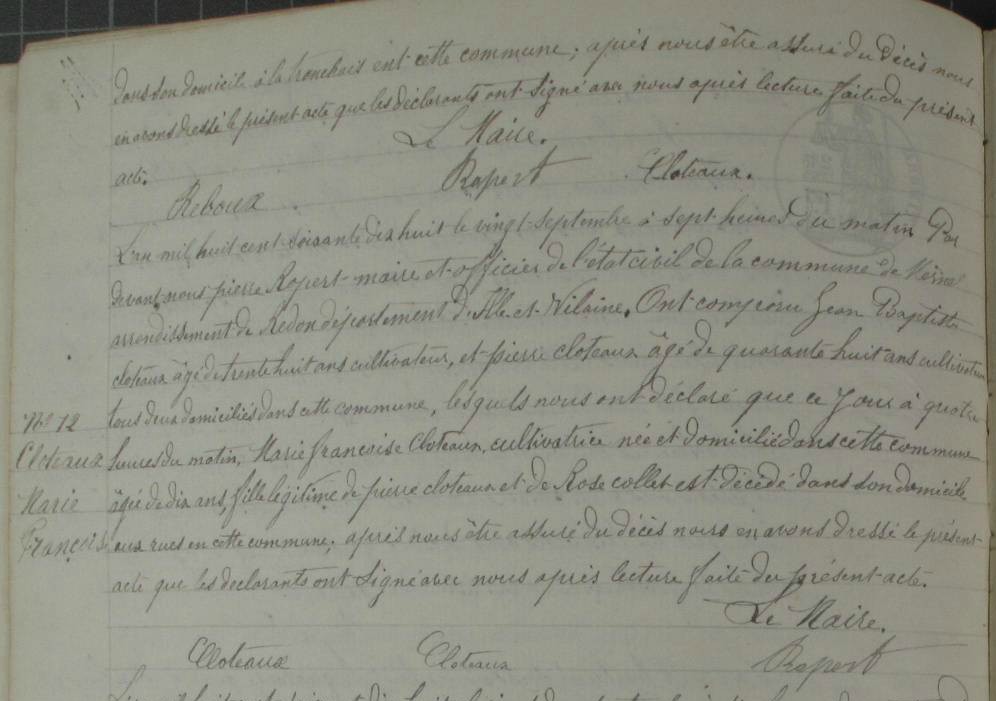 dans son domicile à la tronchais ent cette commune; après nous être assuré du Décès nous
en avons dressé le présent acte que les déclarants ont signé avec nous après lecture faite du présent
acte.
Le Maire.
Reboux Ropert Cloteaux.
L'an mil huit cent soixante dix huit le vingt septembre à sept heures du matin Par
devant nous pierre Ropert maire et officier de l'état civil de la commune de
arrondissement de Redon département d'Ille-et-Vilaine. Ont comparu Jean Baptiste
cloteaux âgé de trente huit ans cultivateur, et pierre cloteaux âgé de quarante huit ans cultivateur
tous deux domiciliés dans cette commune, lesquels nous ont déclaré que ce jour à quatre
N° 12
Cloteaux
Marie
Françoise
heures du matin, Marie françoise Cloteaux, cultivatrice née et domicilié dans cette commune
âgée de dix ans, fille légitime de pierre cloteaux et de Rose collet est décédé dans son domicile
aux rues en cette commune; après nous être assuré du décès nous en avons dressé le présent
acte que les declarants ont signé avec nous après lecture faite du présent acte.
Le Maire.
Cloteaux Cloteaux Ropert